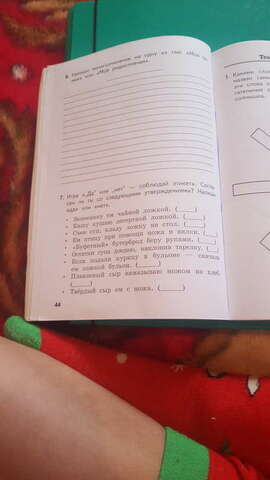 6. Напиши мини-сочинение на одну из тем: «Моя се-
мья» или «Моя родословная».
7. Игра «„Да“ или „нет“ — соблюдай этикет». Согла-
сен ли ты со следующими утверждениями? Напиши
«да» или «нет».
• Яичницу ем чайной ложкой. (
)
• Кашу кушаю десертной ложкой. (
)
• Съев суп, кладу ложку на стол. (
)
• Ем птицу при помощи ножа и вилки. (
)
• «Буфетный» бутерброд беру руками. (
)
• Остатки супа доедаю, наклонив тарелку. (
)
• Если подали курицу в бульоне — сначала
ем ложкой бульон. (
)
• Плавленый сыр намазываю ножом на хлеб.
(
)
• Твёрдый сыр ем с ножа. (
)
44
1.